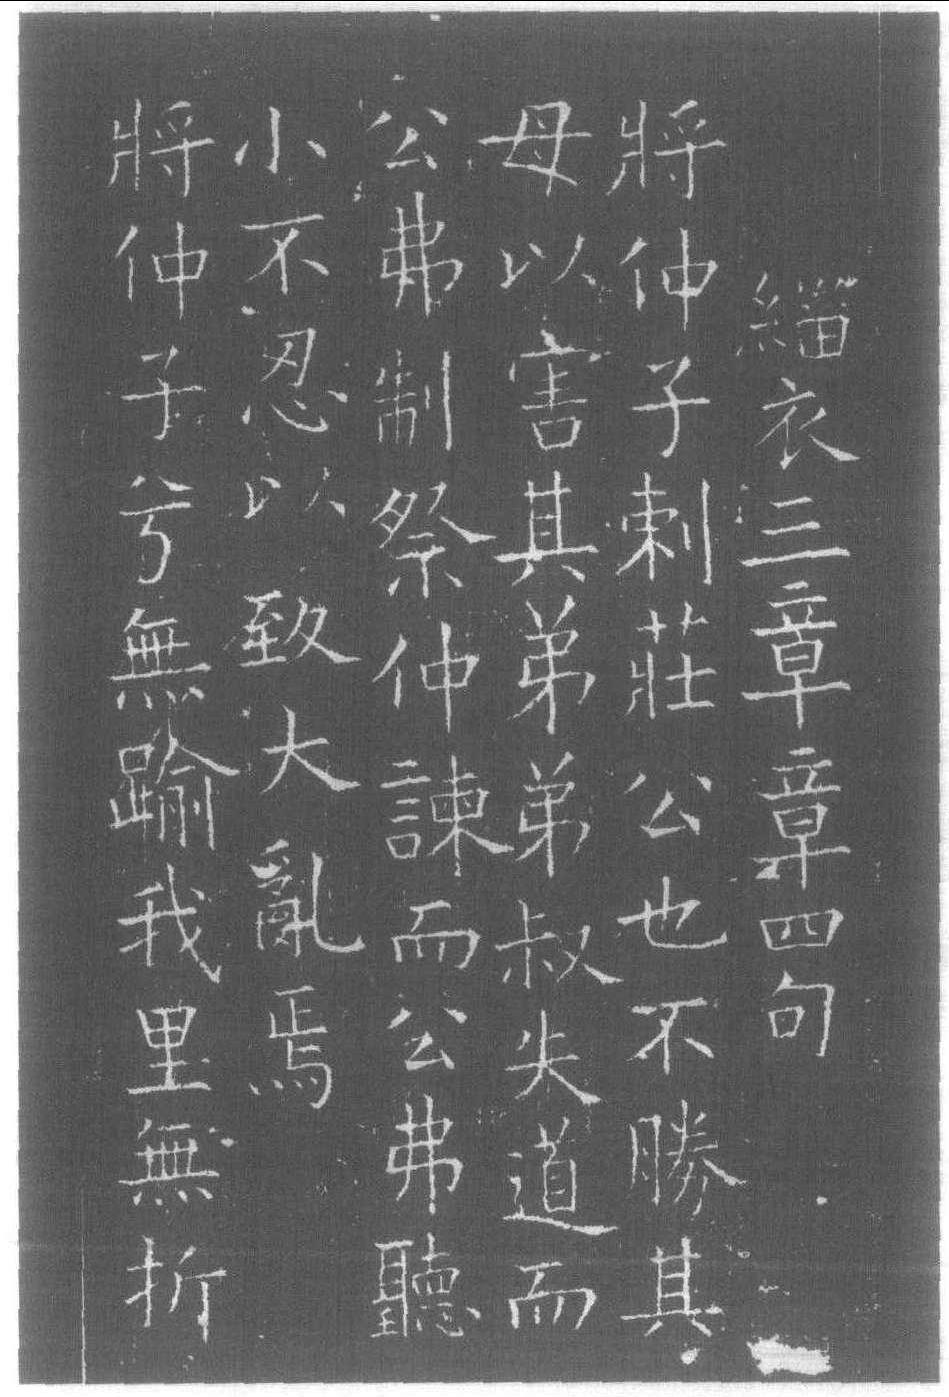 緇衣三章章四句
將仲子刺莊公也不勝其
母以害其弟弟叔失道而
公弗制祭仲諫而公弗聽
小不忍以致大亂焉
將仲子兮無踰我里無折